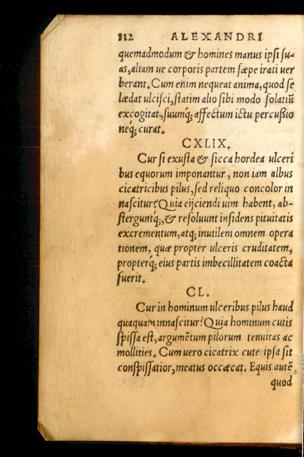 112 ALEXANDRI
quemadmodum & homines manus ipsi su-
as, aliam ue corporis partem sæpe irati uer
berant. Cum enim nequeat anima, quod se
lædat ulcisci, statim alio sibi modo solatiũ
excogitat, suumq́; affectum ictu percußio
neq́; curat.
CXLIX.
Cur si exusta & sicca hordea ulceri
bus equorum imponantur, non iam albus
cicatricibus pilus, sed reliquo concolor in
nascitur? Quia eijciendi uim habent, ab-
sterguntq́;, & resoluunt insidens pituitatis
excrementum, atq; inutilem omnem opera
tionem, quæ propter ulceris cruditatem,
propterq́; eius partis imbecillitatem coacta
fuerit.
CL.
Cur in hominum ulceribus pilus haud
quaquam innascitur? Quia hominum cutis
spissa est, argumẽtum pilorum tenuitas ac
mollities. Cum uero cicatrix cute ipsa sit
conspissatior, meatus occæcat. Equis autẽ
quod